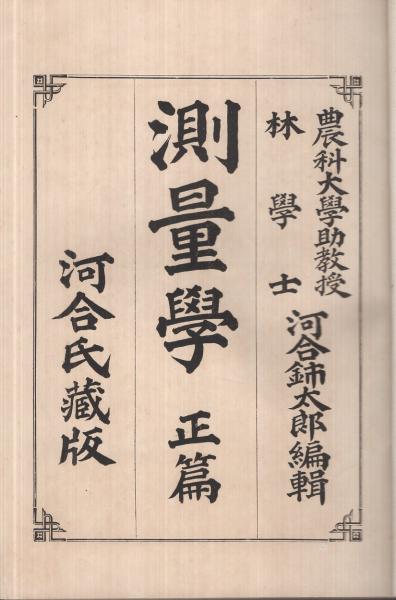 農科大學助教授
林學士
河合鈰太郎編輯
測量學 正篇
河合氏藏版